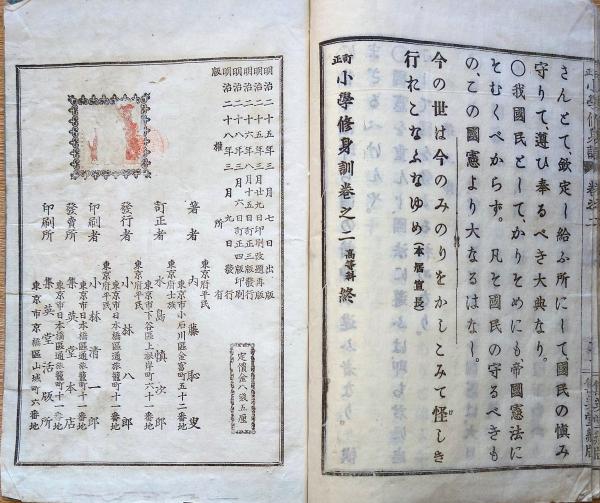 さんとて、欽定し給ふ所にして、國民の愼み
守りて、遵ひ奉るべき大典なり。
〇我國民として、かりそめにも、帝國憲法に
そむくべからず。凡そ國民の守るべきも
の、この國憲より大なるはなし。
今の世は今のみのりをかしこみて怪しき
行れこなふなゆめ(本居宣長)
訂正 小學修身訓卷之二 高等科 終
明治二十五年三月七日出版
明治二十五年三月廿九日印刷改題再版
明治二十六年八月十五日訂正三版
明治二十八年三月六日訂正四版印刷
明治二十八年三月九日發行
版權所有
定價金八錢五厘
著者 東京府平民 内藤恥叟
東京市小石川區金富町五十二番地
訂正者 東京府士族 水島愼次郎
東京市下谷區上根岸町六十一番地
發行者 東京府平民 小林八郎
東京市日本橋區通旅籠町十一番地
印刷者 小林清一郎
東京市日本橋區通旅籠町十一番地
發賣所 集英堂本店
東京市日本橋區通旅籠町十一番地
印刷所 集英堂活版所
東京市京橋區山城町六番地